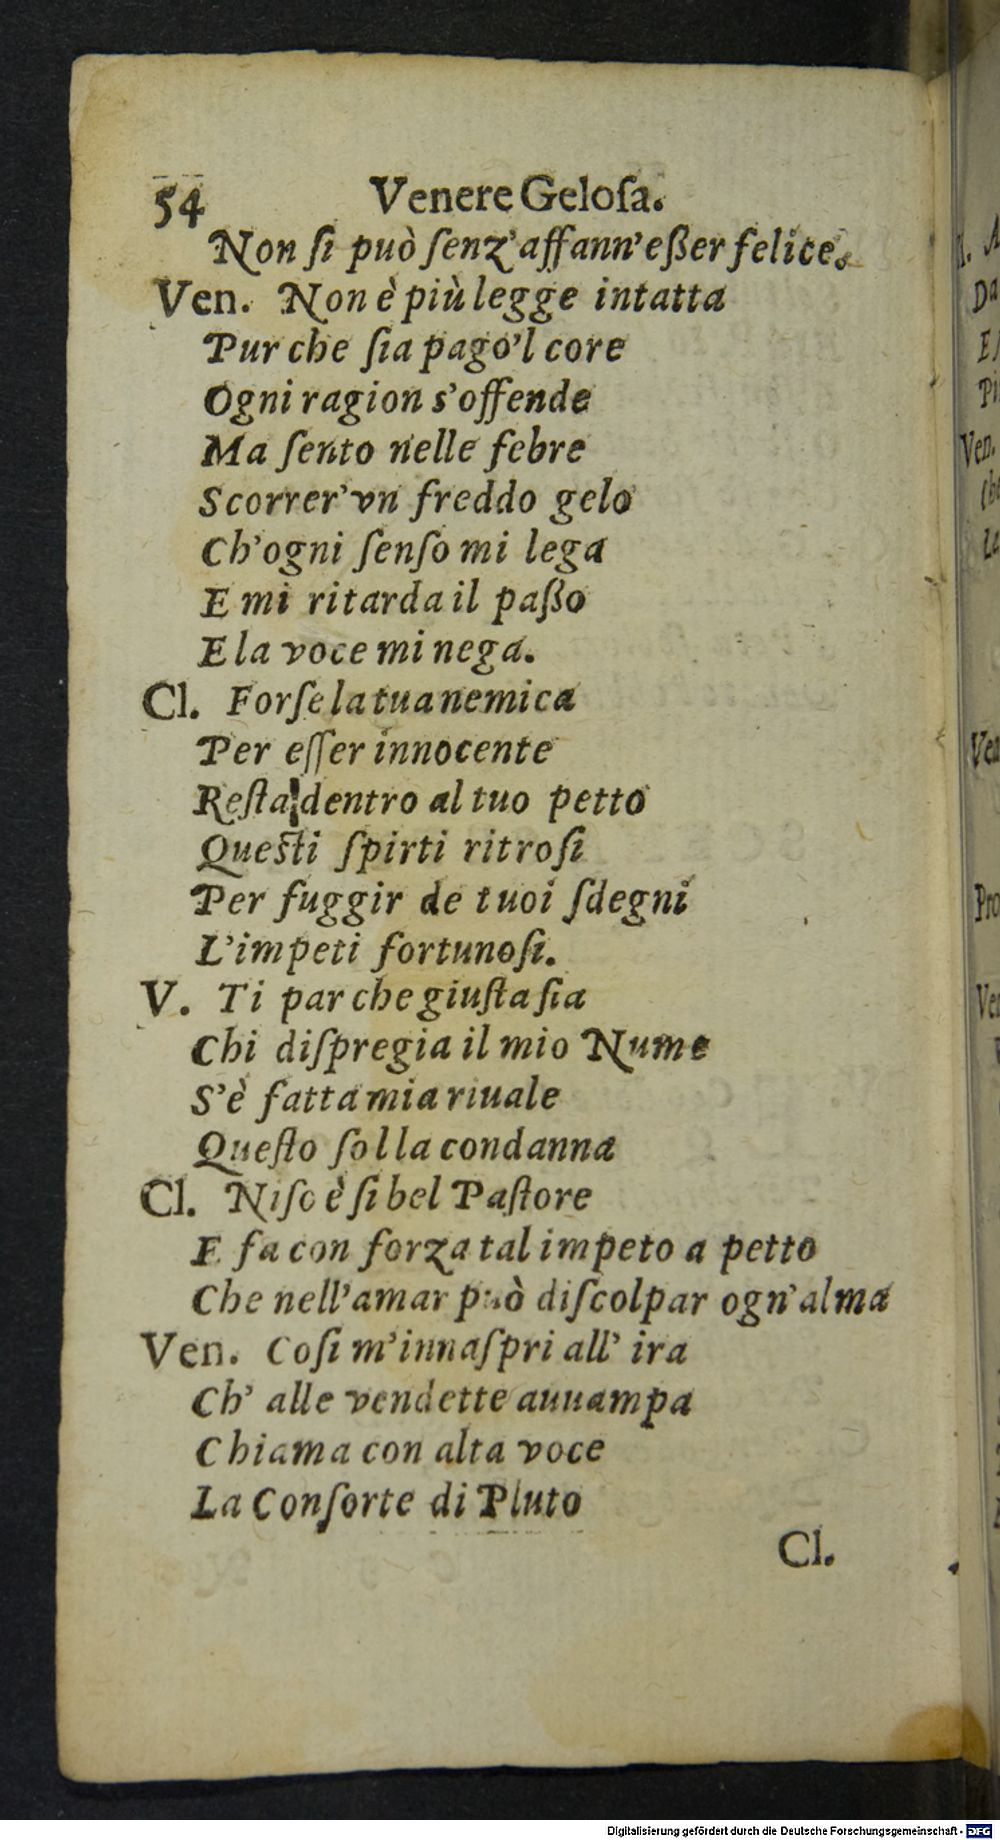 54 Venere Geloſa.
Non ſi può ſenz'affann'eßer felice.
Ven. Non è più legge intatta
Pur che ſia pago'l core
Ogni ragion s'offende
Ma ſento nelle febre
Scorrer'vn freddo gelo
Ch'ogni ſenſo mi lega
E mi ritarda il paßo
E la voce mi nega.
Cl. Forſe la tua nemica
Per eſſer innocente
Reſta dentro al tuo petto
Questi ſpirti ritroſi
Per fuggir de tuoi ſdegni
L'impeti fortunoſi.
V. Ti par che giuſta ſia
Chi diſpregia il mio Nume
S'è fatta mia riuale
Queſto ſol la condanna
Cl. Niſo è ſi bel Paſtore
E fa con forza tal impeto a petto
Che nell'amar può diſcolpar ogn'alma
Ven. Coſi m'innaſpri all' ira
Ch' alle vendette auuampa
Chiama con alta voce
La Conſorte di Pluto
Cl.
Da
Ven.
Digitalisierung gefördert durch die Deutsche Forschungsgemeinschaft - DFG